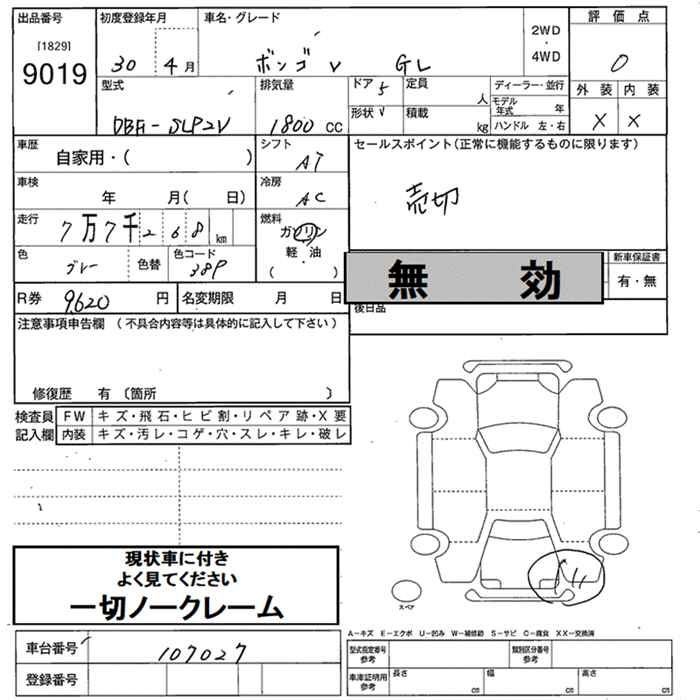 出品番号
[1829]
9019
初度登録年月
30 4月
車名・グレード
ボンゴ V GL
2WD
・
4WD
評価点
0
外装 内装
X X
型式
DBF-SLP2V
排気量
1800 CC
ドア 5
形状 V
定員 人
積載 kg
ディーラー・並行
モデル年式 年
ハンドル 左・右
車歴
自家用・( )
シフト
AT
車検
年 月( 日)
冷房
AC
走行
7万7千268km
燃料
ガソリン
軽油
( ・ )
色
グレー
色替
色コード
38P
セールスポイント(正常に機能するものに限ります)
売切
無効
新車保証書
有・無
後日品
R券 9620円
名変期限 月 日
注意事項申告欄 (不具合内容等は具体的に記入して下さい)
修復歴 有 〔箇所 〕
検査員記入欄
FW キズ・飛石・ヒビ割・リペア跡・X要
内装 キズ・汚レ・コゲ・穴・スレ・キレ・破レ
現状車に付き
よく見てください
一切ノークレーム
スペア
A-キズ E-エクボ U-凹み W-補修跡 S-サビ C-腐食 XX-交換済
車台番号 107027
登録番号
型式指定番号 参考
類別区分番号 参考
車庫証明用 参考
長さ cm
幅 cm
高さ cm